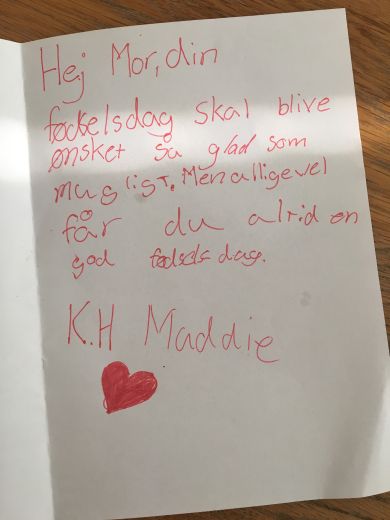 Hej Mor, din
fødelsdag skal blive
ønsket så glad som
mugligt. Men alligevel
får du altid en
god fødsels dag.
K.H Maddie